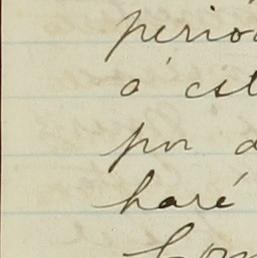 perio
á est
por a
haré